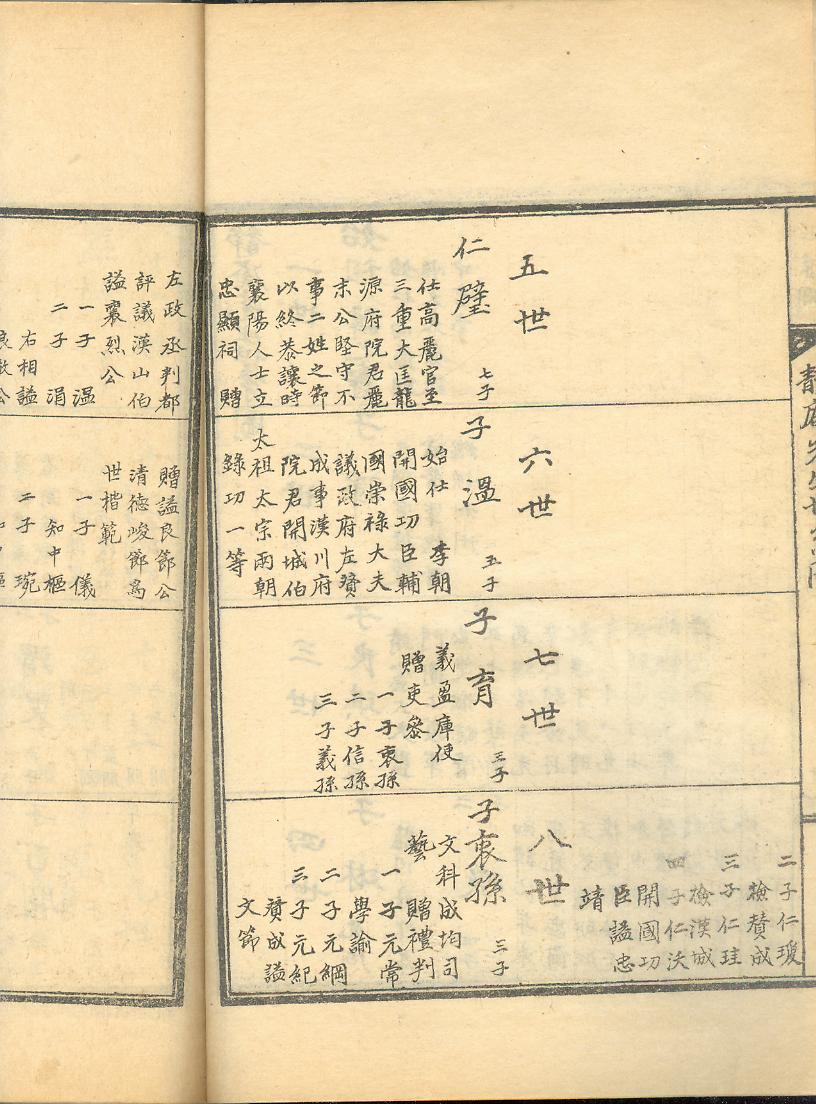 二子仁瓊
檢賛成
三子仁珪
檢漢城
四子仁沃
開國功
臣謚忠
靖
五世
仁璧
七子
仕高麗官至
三重大匡龍
源府院君麗
末公堅守不
事二姓之節
以終恭讓時
襄陽人士立
忠顯祠 贈
左政丞判都
評議漢山伯
謚襄烈公
一子 温
二子 涓
右相謚
六世
子 溫
五子
始仕 李朝
開國功臣輔
國崇祿大夫
議政府左賛
成事漢川府
院君開城伯
太祖太宗兩朝
錄功一等
贈謚良節公
清德峻節爲
世楷範
一子 儀
知中樞
二子 琬
七世
子 育
三子
義盈庫使
贈吏叅
一子衷孫
二子信孫
三子義孫
八世
子衷孫
三子
文科成均司
藝 贈禮判
一子元常
學諭
二子元綱
三子元紀
賛成謚
文節